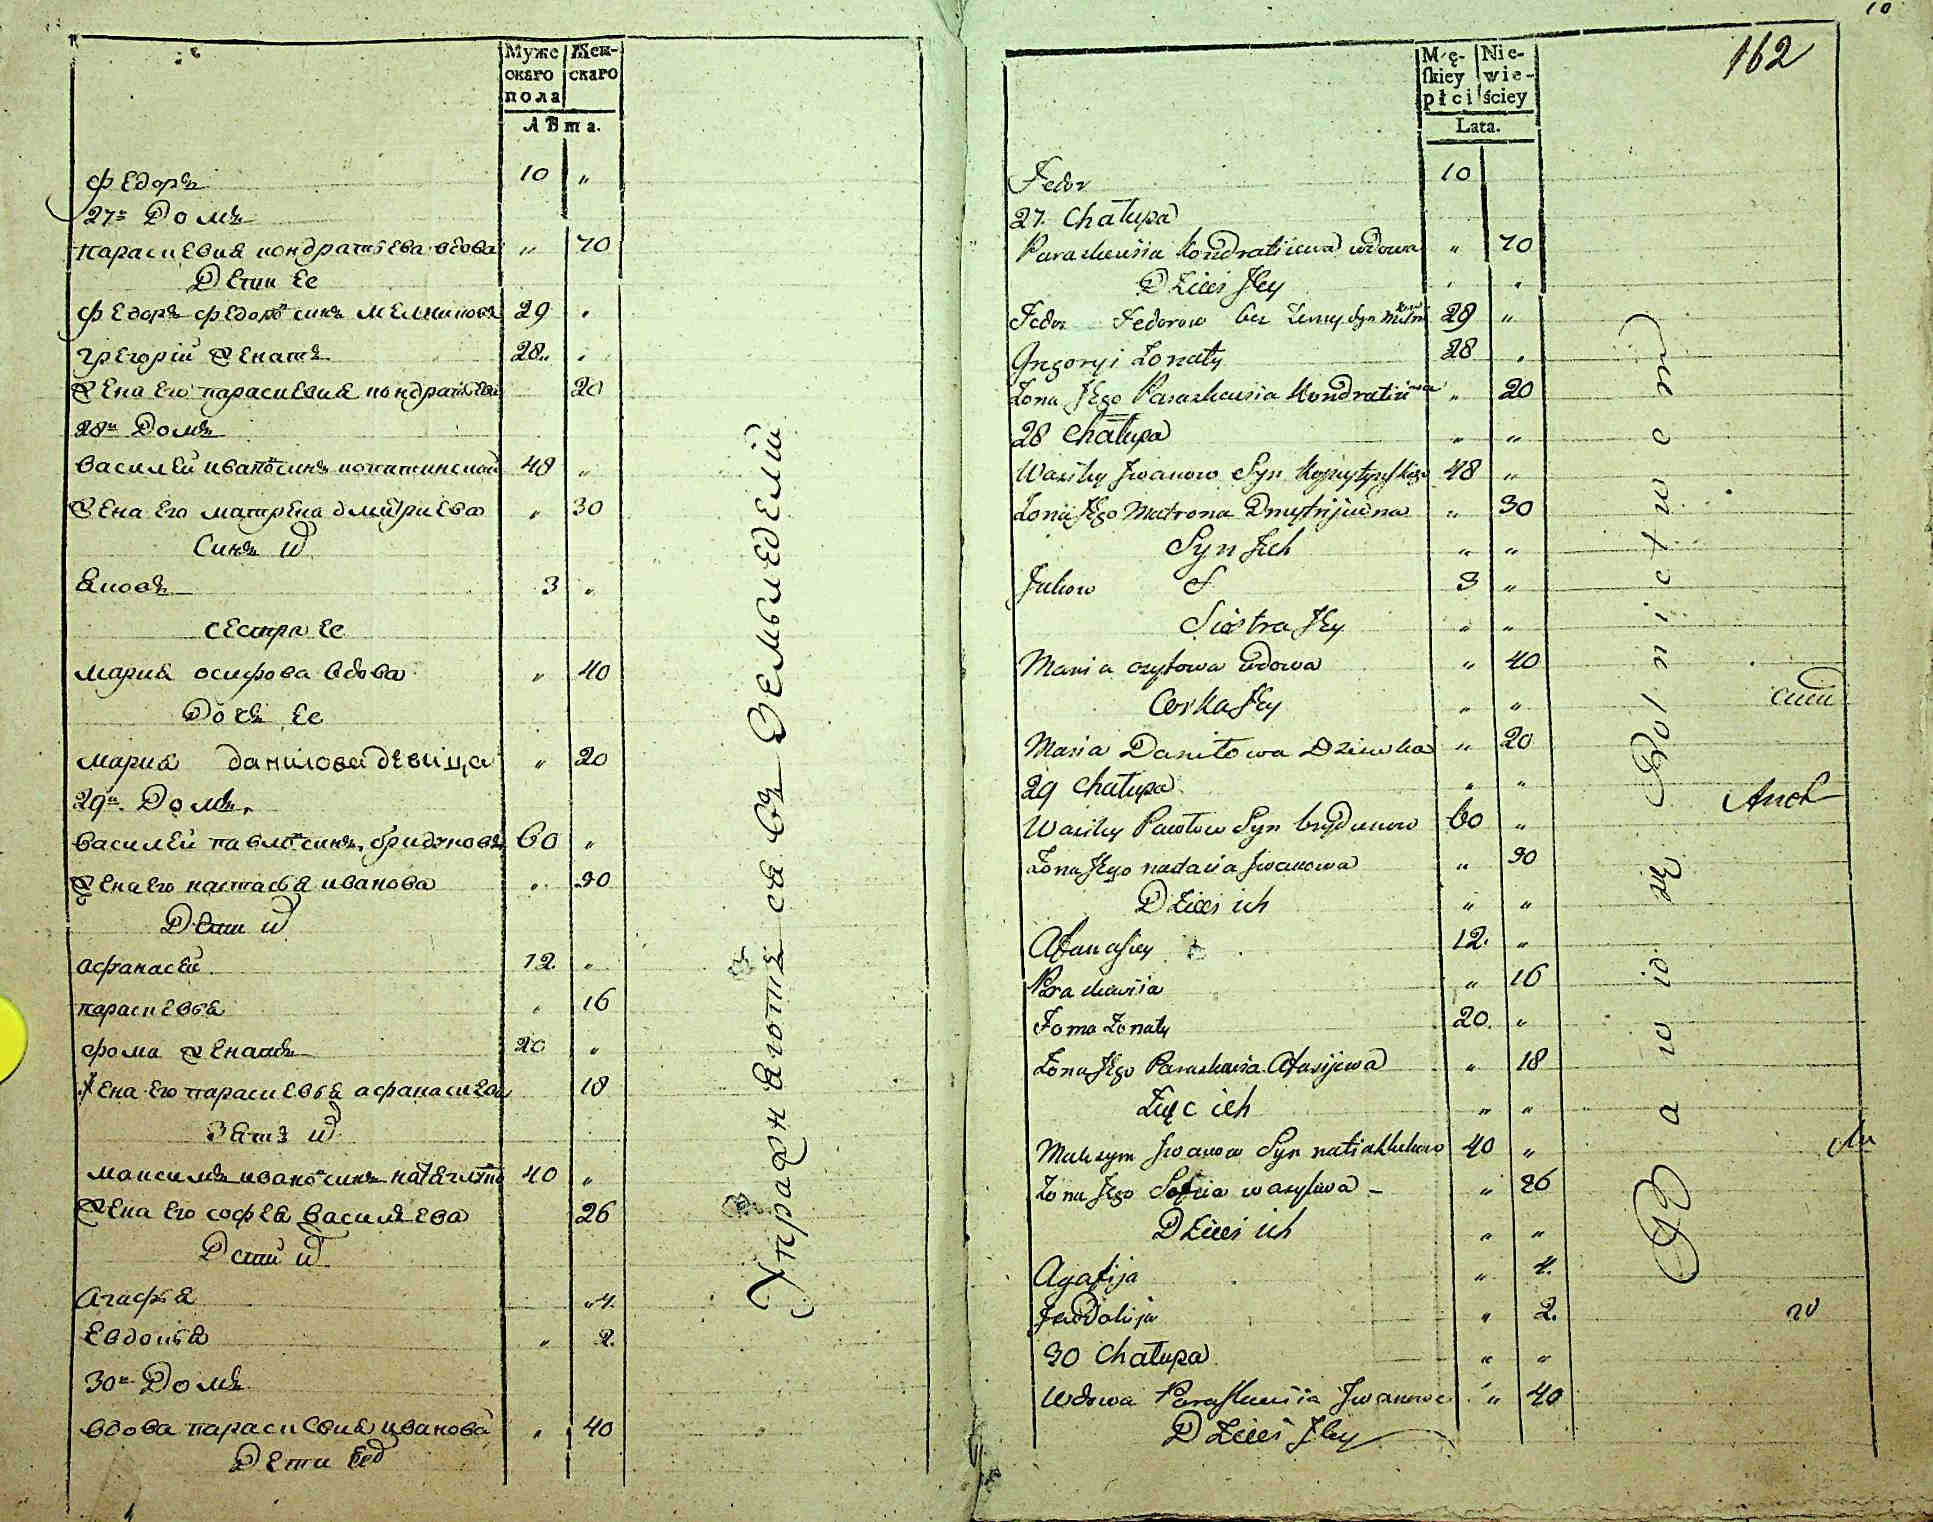 Муже
скаго
пола
Жен-
скаго
Лѣта.
Федоръ 10 "
27й Домъ
параскевия кондратьева вдова " 70
Дети ее
Федоръ Федоровъ синъ мелниковъ 29 "
Григорій женатъ 28 "
Жена его параскевия кондратьева 20
28й Домъ
Василей ивановъ синъ 48 "
Жена его матрена дмитриева " 30
Синъ их
Яковъ 3 "
сестра ее
мария осифова вдова " 40
Дочь ее
мария данилова девица " 20
29й Домъ
Василей павловъ синъ бридуновъ 60 "
Жена его настасья иванова " 30
Дети их
афанасей 12 "
параскевья " 16
фома женатъ 20 "
жена его параскевья афанасиева 18
Зять их
максимъ ивановъ синъ 40 "
Жена его софея василева 26
Дети их
Агафья " 4
Евдокья " 2
30й Домъ
вдова параскевия иванова " 40
Дети ее
Упражняютъся въ Земьледелiи
162
Mę-
skiey
płci
Nie-
wie-
ściey
Lata.
Fedor 10
27. Chałupa
Paraskewia Kondratiiewa wdowa " 70
Dzieci Jey
Fedor Fedorow bez żeny Syn 29 "
Gregoryi Zonaty 28 "
Zona Jego Paraskewia Kondratiewa " 20
28 Chałupa " "
Wasiley Jwanow Syn 48 "
Zona Jego Matrona Dmytrijewna " 30
Syn Jch " "
Jakow 3 "
Siostra Jey " "
Maria ozyfowa wdowa " 40
Corka Jey " "
Maria Daniłowa Dziewka " 20
29 Chałupa " "
Wasiley Pawłow Syn brydunow 60 "
Zona Jego nastasia Jwanowa " 30
Dzieci ich " "
Afanasiey 12. "
Paraskewia " 16
Foma Zonaty 20. "
Zona Jego Paraskewia Afasijewa " 18
Zięc ich " "
Maksym Jwanow Syn 40 "
Zona Jego Sofia wasylewa " 26
Dzieci ich " "
Agafija " 4.
Jewdokija " 2.
30 Chałupa " "
Wdowa Paraskewia Jwanowa " 40
Dzieci Jey
Bawią się Rolnictwem